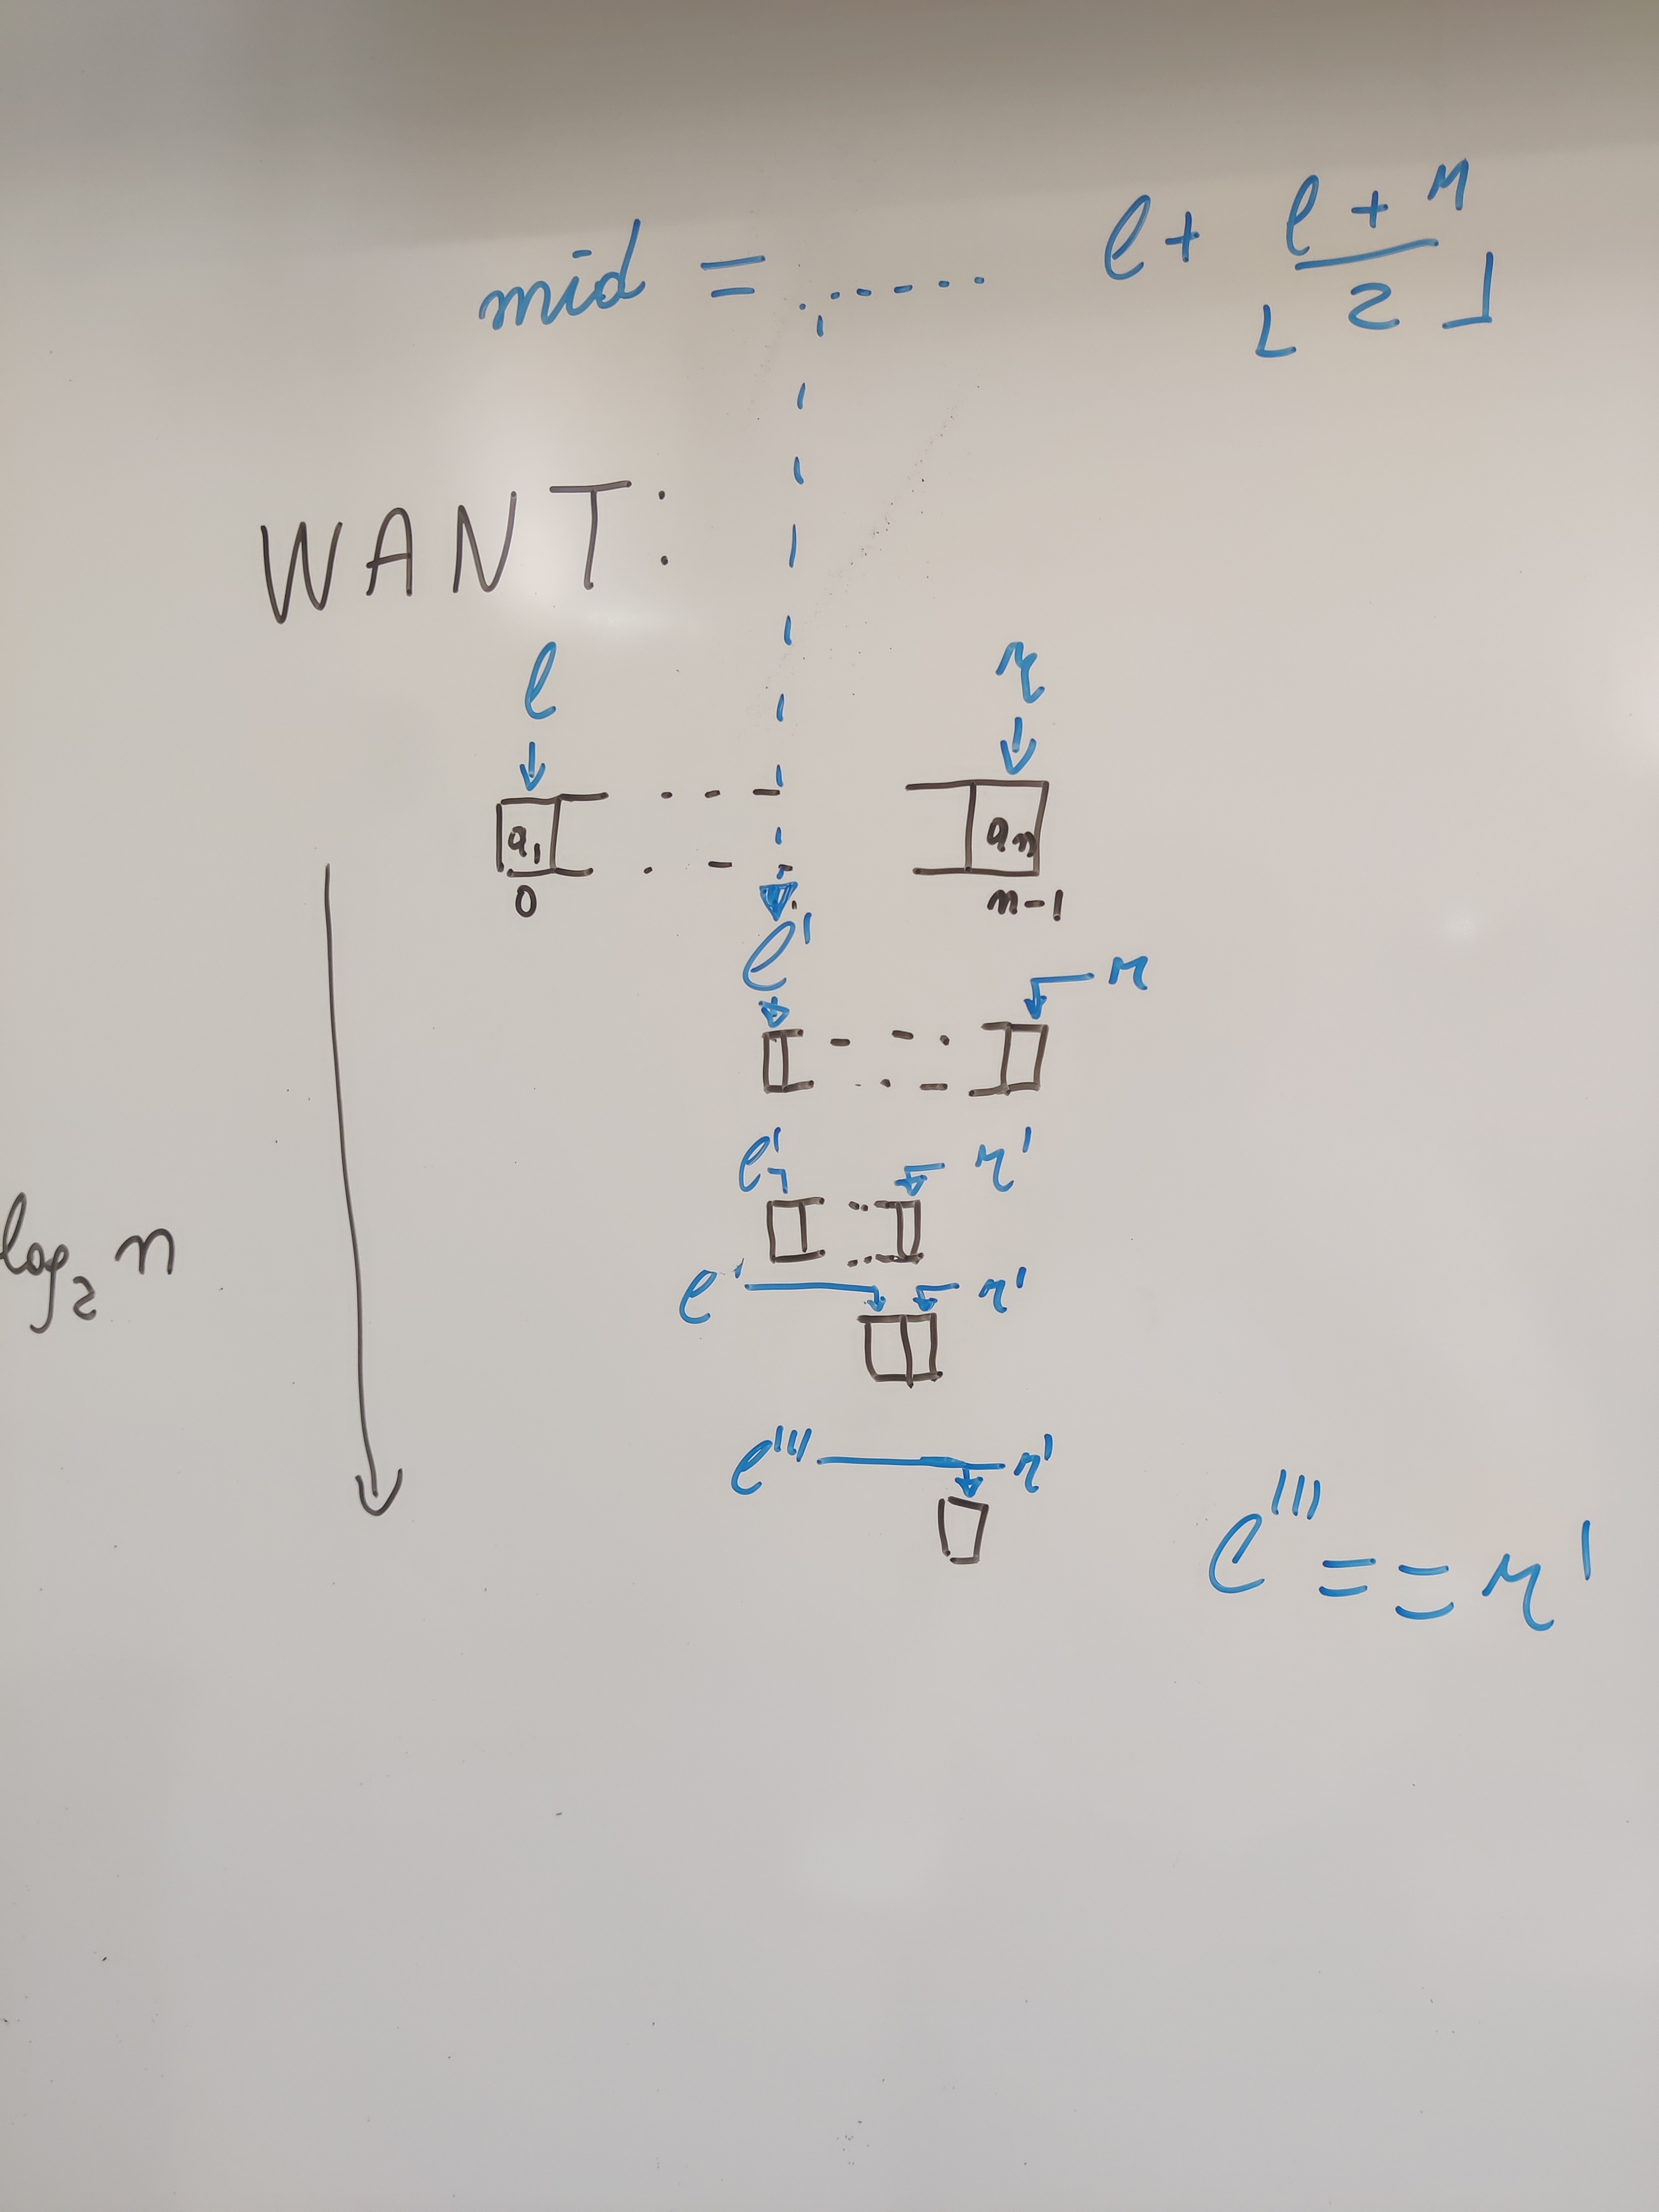 mid = ...... l + ⌊(l + r)/2⌋
WANT:
l r
a₁ aₙ
0 n-1
l'
r
l' r'
log₂ n
l' r'
l''' r'
l''' == r'